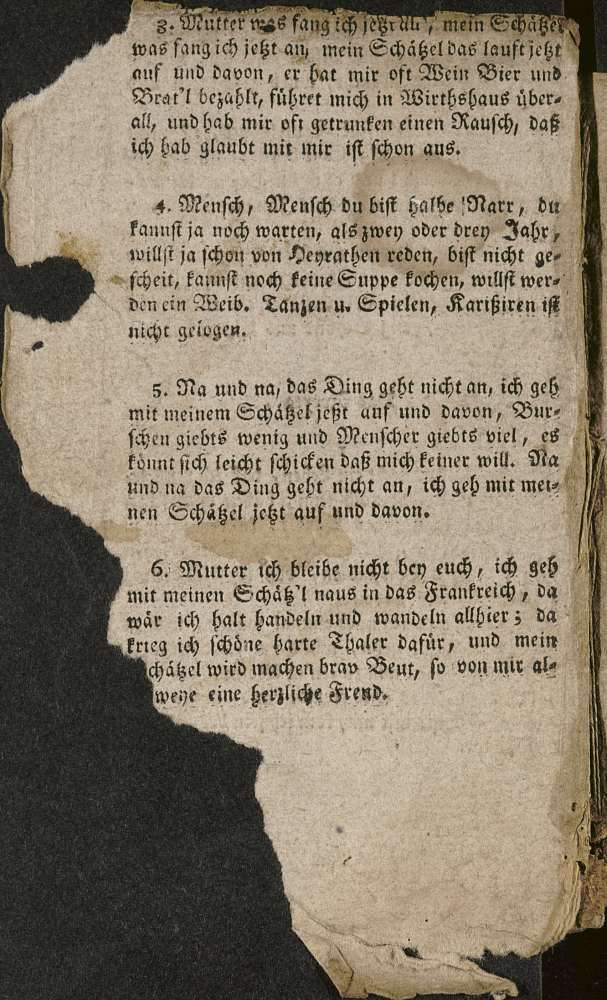 3. Mutter was fang ich jetzt an, mein Schätzel
was fang ich jetzt an, mein Schätzel das lauft jetzt
auf und davon, er hat mir oft Wein Bier und
Brat'l bezahlt, führet mich in Wirthshaus über-
all, und hab mir oft getrunken einen Rausch, daß
ich hab glaubt mit mir ist schon aus.
4. Mensch, Mensch du bist halbe Narr, du
kannst ja noch warten, als zwey oder drey Jahr,
willst ja schon von Heyrathen reden, bist nicht ge-
scheit, kannst noch keine Suppe kochen, willst wer-
den ein Weib. Tanzen u. Spielen, Karißiren ist
nicht gelogen.
5. Na und na, das Ding geht nicht an, ich geh
mit meinem Schätzel jeßt auf und davon, Bur-
schen giebts wenig und Menscher giebts viel, es
könnt sich leicht schicken daß mich keiner will. Na
und na das Ding geht nicht an, ich geh mit mei-
nen Schätzel jetzt auf und davon.
6. Mutter ich bleibe nicht bey euch, ich geh
mit meinen Schätz'l naus in das Frankreich, da
wär ich halt handeln und wandeln allhier; da
krieg ich schöne harte Thaler dafür, und mein
chätzel wird machen brav Beut, so von mir al-
weye eine herzliche Freud.